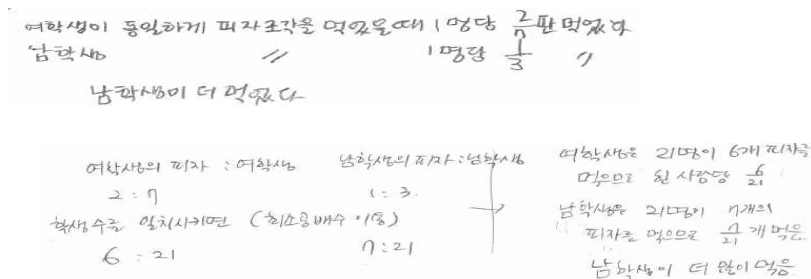 여학생이 동일하게 피자조각을 먹었을때 1명당 2/7판 먹었다
남학생 〃 1명당 1/3 〃
남학생이 더 먹었다
여학생의 피자 : 여학생
2 : 7
남학생의 피자 : 남학생
1 : 3.
학생수를 일치시키면 (최소공배수 이용)
6 : 21
7 : 21
여학생은 21명이 6개 피자를
먹으므로 한 사람당 6/21
남학생은 21명이 7개의
피자를 먹으므로 7/21 개 먹음
남학생이 더 많이 먹음